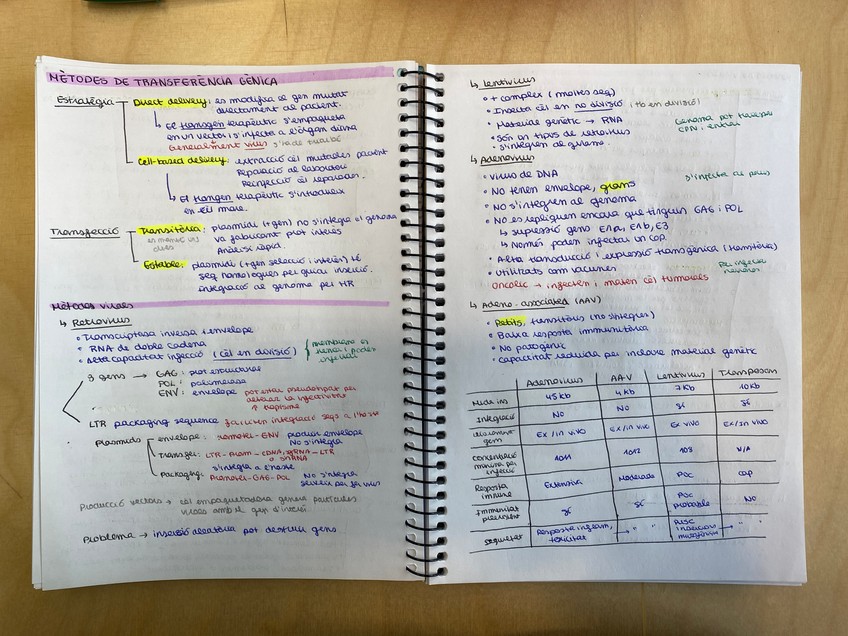 MÈTODES DE TRANSFERÈNCIA GÈNICA
Estratègia
Direct delivery: es modifica el gen mutat
directament al pacient.
↳ El transgen terapèutic s'empaqueta
en un vector i s'infecta a l'òrgan diana
Generalment virus s'ha de
Cell-based delivery: extracció cèl mutades pacient
Reparació al laboratori
Reinjecció cèl reparades.
↳ El transgen terapèutic s'introdueix
en cèl mare.
Transfecció
Transitòria: plasmidi (+gen) no s'integra al genoma
va fabricant prot interès
Anàlisi ràpid.
Estable: plasmidi (+gen selecció i interès) té
seq homòlogues per guiar inserció.
integració al genoma per HR
Mètodes virals
↳ Retrovirus
• Transcriptasa inversa i envelope
• RNA de doble cadena
• Alta capacitat injecció (cèl en divisió)
3 gens → GAG: prot estructurals
POL: polimerasa
ENV: envelope pot estar pseudotipat per
↑ tropisme
LTR packaging sequence
Plasmidis
envelope: Promoter-ENV produir envelope
No s'integra
Transfer: LTR-Prom-cDNA, sgRNA-LTR
o shRNA
s'integra a l'hoste
Packaging: Promoter-GAG-POL No s'integra
Producció vectors → cèl empaquetadora genera partícules
virals amb el gen d'interès
Problema → inserció aleatòria pot destruir gens
↳ Lentivirus
• + complex (moltes seq)
• Infecta cèl en no divisió (tb en divisió)
• Material genètic → RNA
• Són un tipus de retrovirus
• S'integren al genoma.
Genoma pot travessar
↳ Adenovirus
• Virus de DNA
• No tenen envelope, grans
• No s'integren al genoma
• No es repliquen encara que tinguin GAG i POL
↳ supressió gens E1A, E1b, E3
↳ Només poden infectar un cop
• Alta transducció i expressió transgènica (transitòria)
• Utilitzats com vacunes
Oncolic → infecten i maten cèl tumorals
↳ Adeno-associated (AAV)
• Petits, transitòris (no s'integren)
• Baixa resposta immunitària
• No patogènic
• Capacitat reduïda per incloure material genètic
Adenovirus AAV Lentivirus Transposon
45Kb 4Kb 7Kb 10Kb
Integració No No sí sí
Ex/in vivo Ex/in vivo Ex vivo Ex/in vivo
10¹¹ 10¹² 10⁸ N/A
Resposta immune Extensiva Moderada Poc Cap
Immunitat preexistent sí sí Poc probable No
Seguretat Resposta inflam, toxicitat → " " Risc →" "